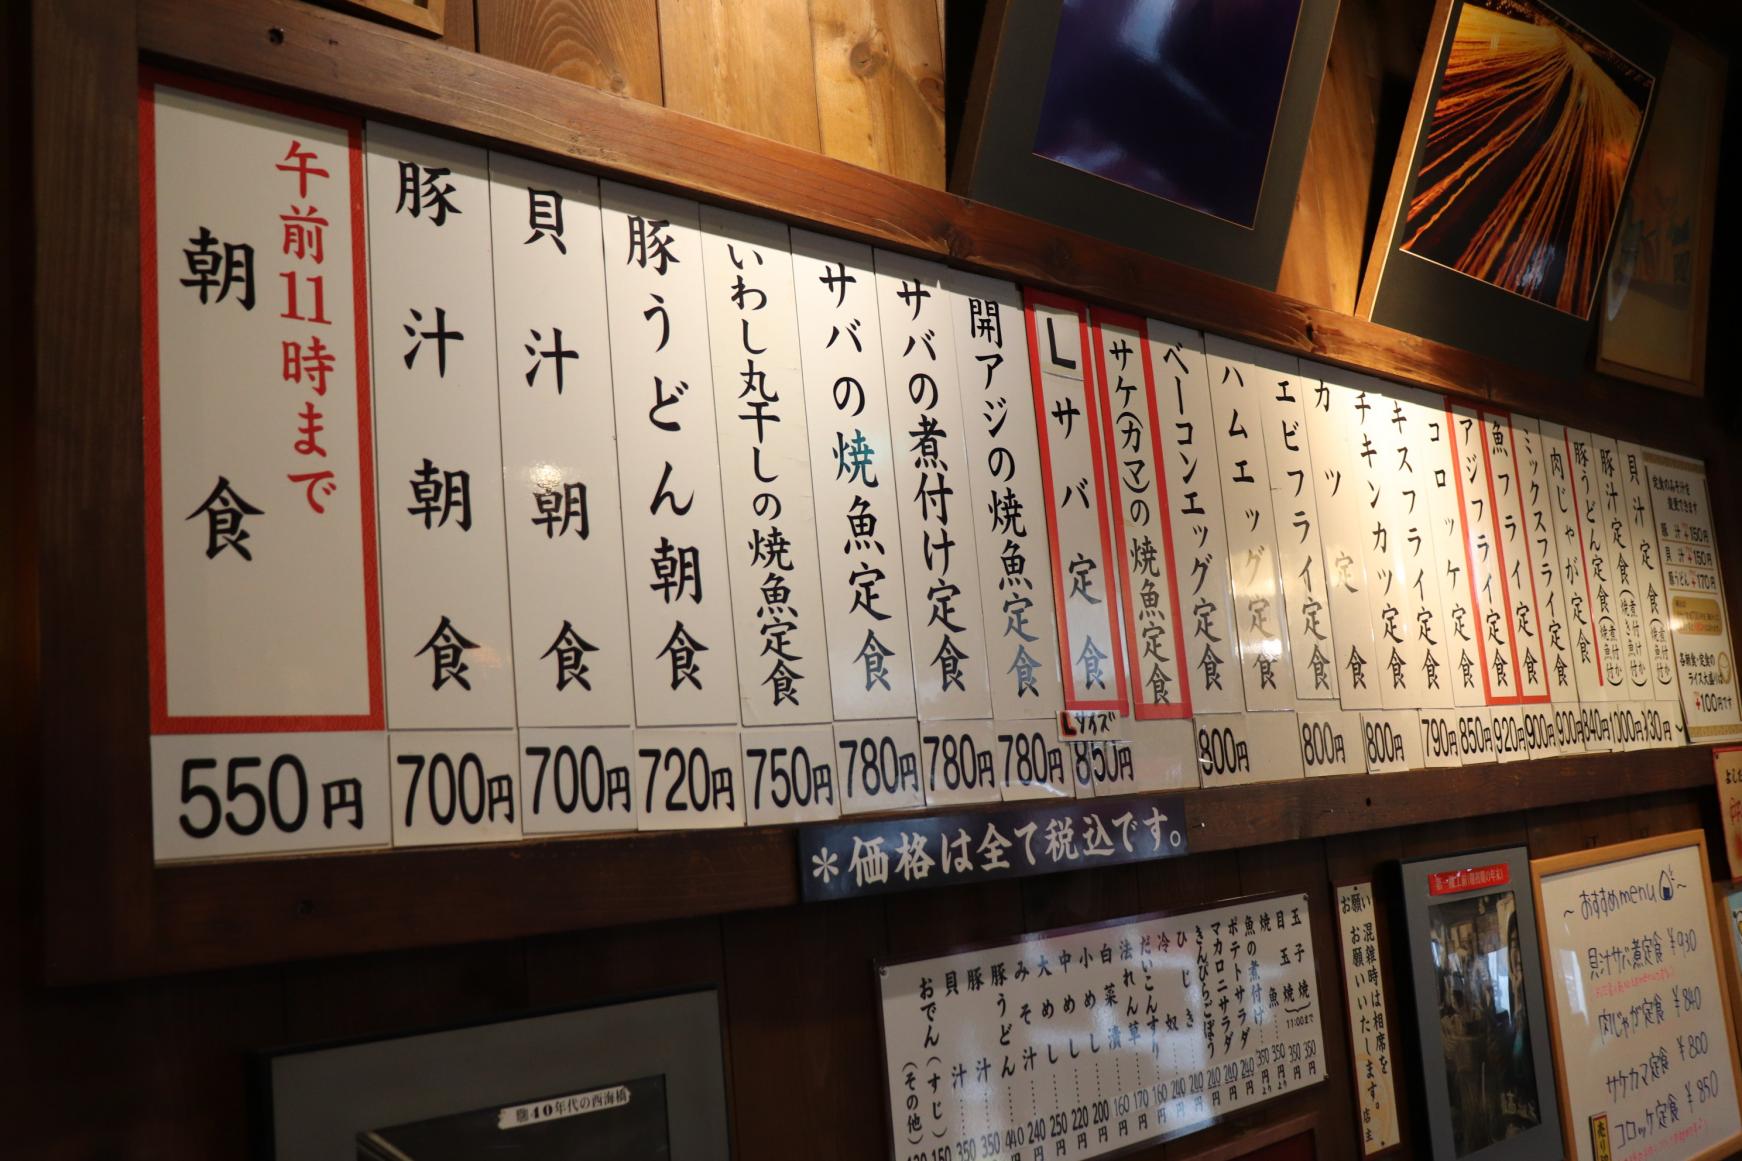 午前11時まで
朝食
550円
豚汁朝食
700円
貝汁朝食
700円
豚うどん朝食
720円
いわし丸干しの焼魚定食
750円
サバの焼魚定食
780円
サバの煮付け定食
780円
開アジの焼魚定食
780円
Lサバ定食
Lサイズ
850円
サケ(カマ)の焼魚定食
ベーコンエッグ定食
800円
ハムエッグ定食
エビフライ定食
800円
カツ定食
チキンカツ定食
800円
キスフライ定食
コロッケ定食
790円
アジフライ定食
850円
魚フライ定食
920円
ミックスフライ定食
900円
肉じゃが定食
豚うどん定食
840円
豚汁定食
貝汁定食
豚汁 +150円
貝汁 +150円
豚うどん +170円
+100円です
*価格は全て税込です。
玉子焼
350円
目玉焼
350円
(11:00まで)
焼魚
350円より
魚の煮付け
350円より
ポテトサラダ
240円
マカロニサラダ
240円
きんぴらごぼう
240円
ひじき
240円
冷奴
240円
だいこんすり
160円
法れん草
170円
白菜漬
160円
小めし
200円
中めし
220円
大めし
250円
みそ汁
240円
豚うどん
440円
豚汁
350円
貝汁
350円
おでん(すじ)
150
(その他)
お願い
混雑時は相席を
お願いいたします。
店主
昭40年代の西海橋
~おすすめmenu~
貝汁サバ煮定食 ¥930
肉じゃが定食 ¥840
サケカマ定食 ¥800
コロッケ定食 ¥850